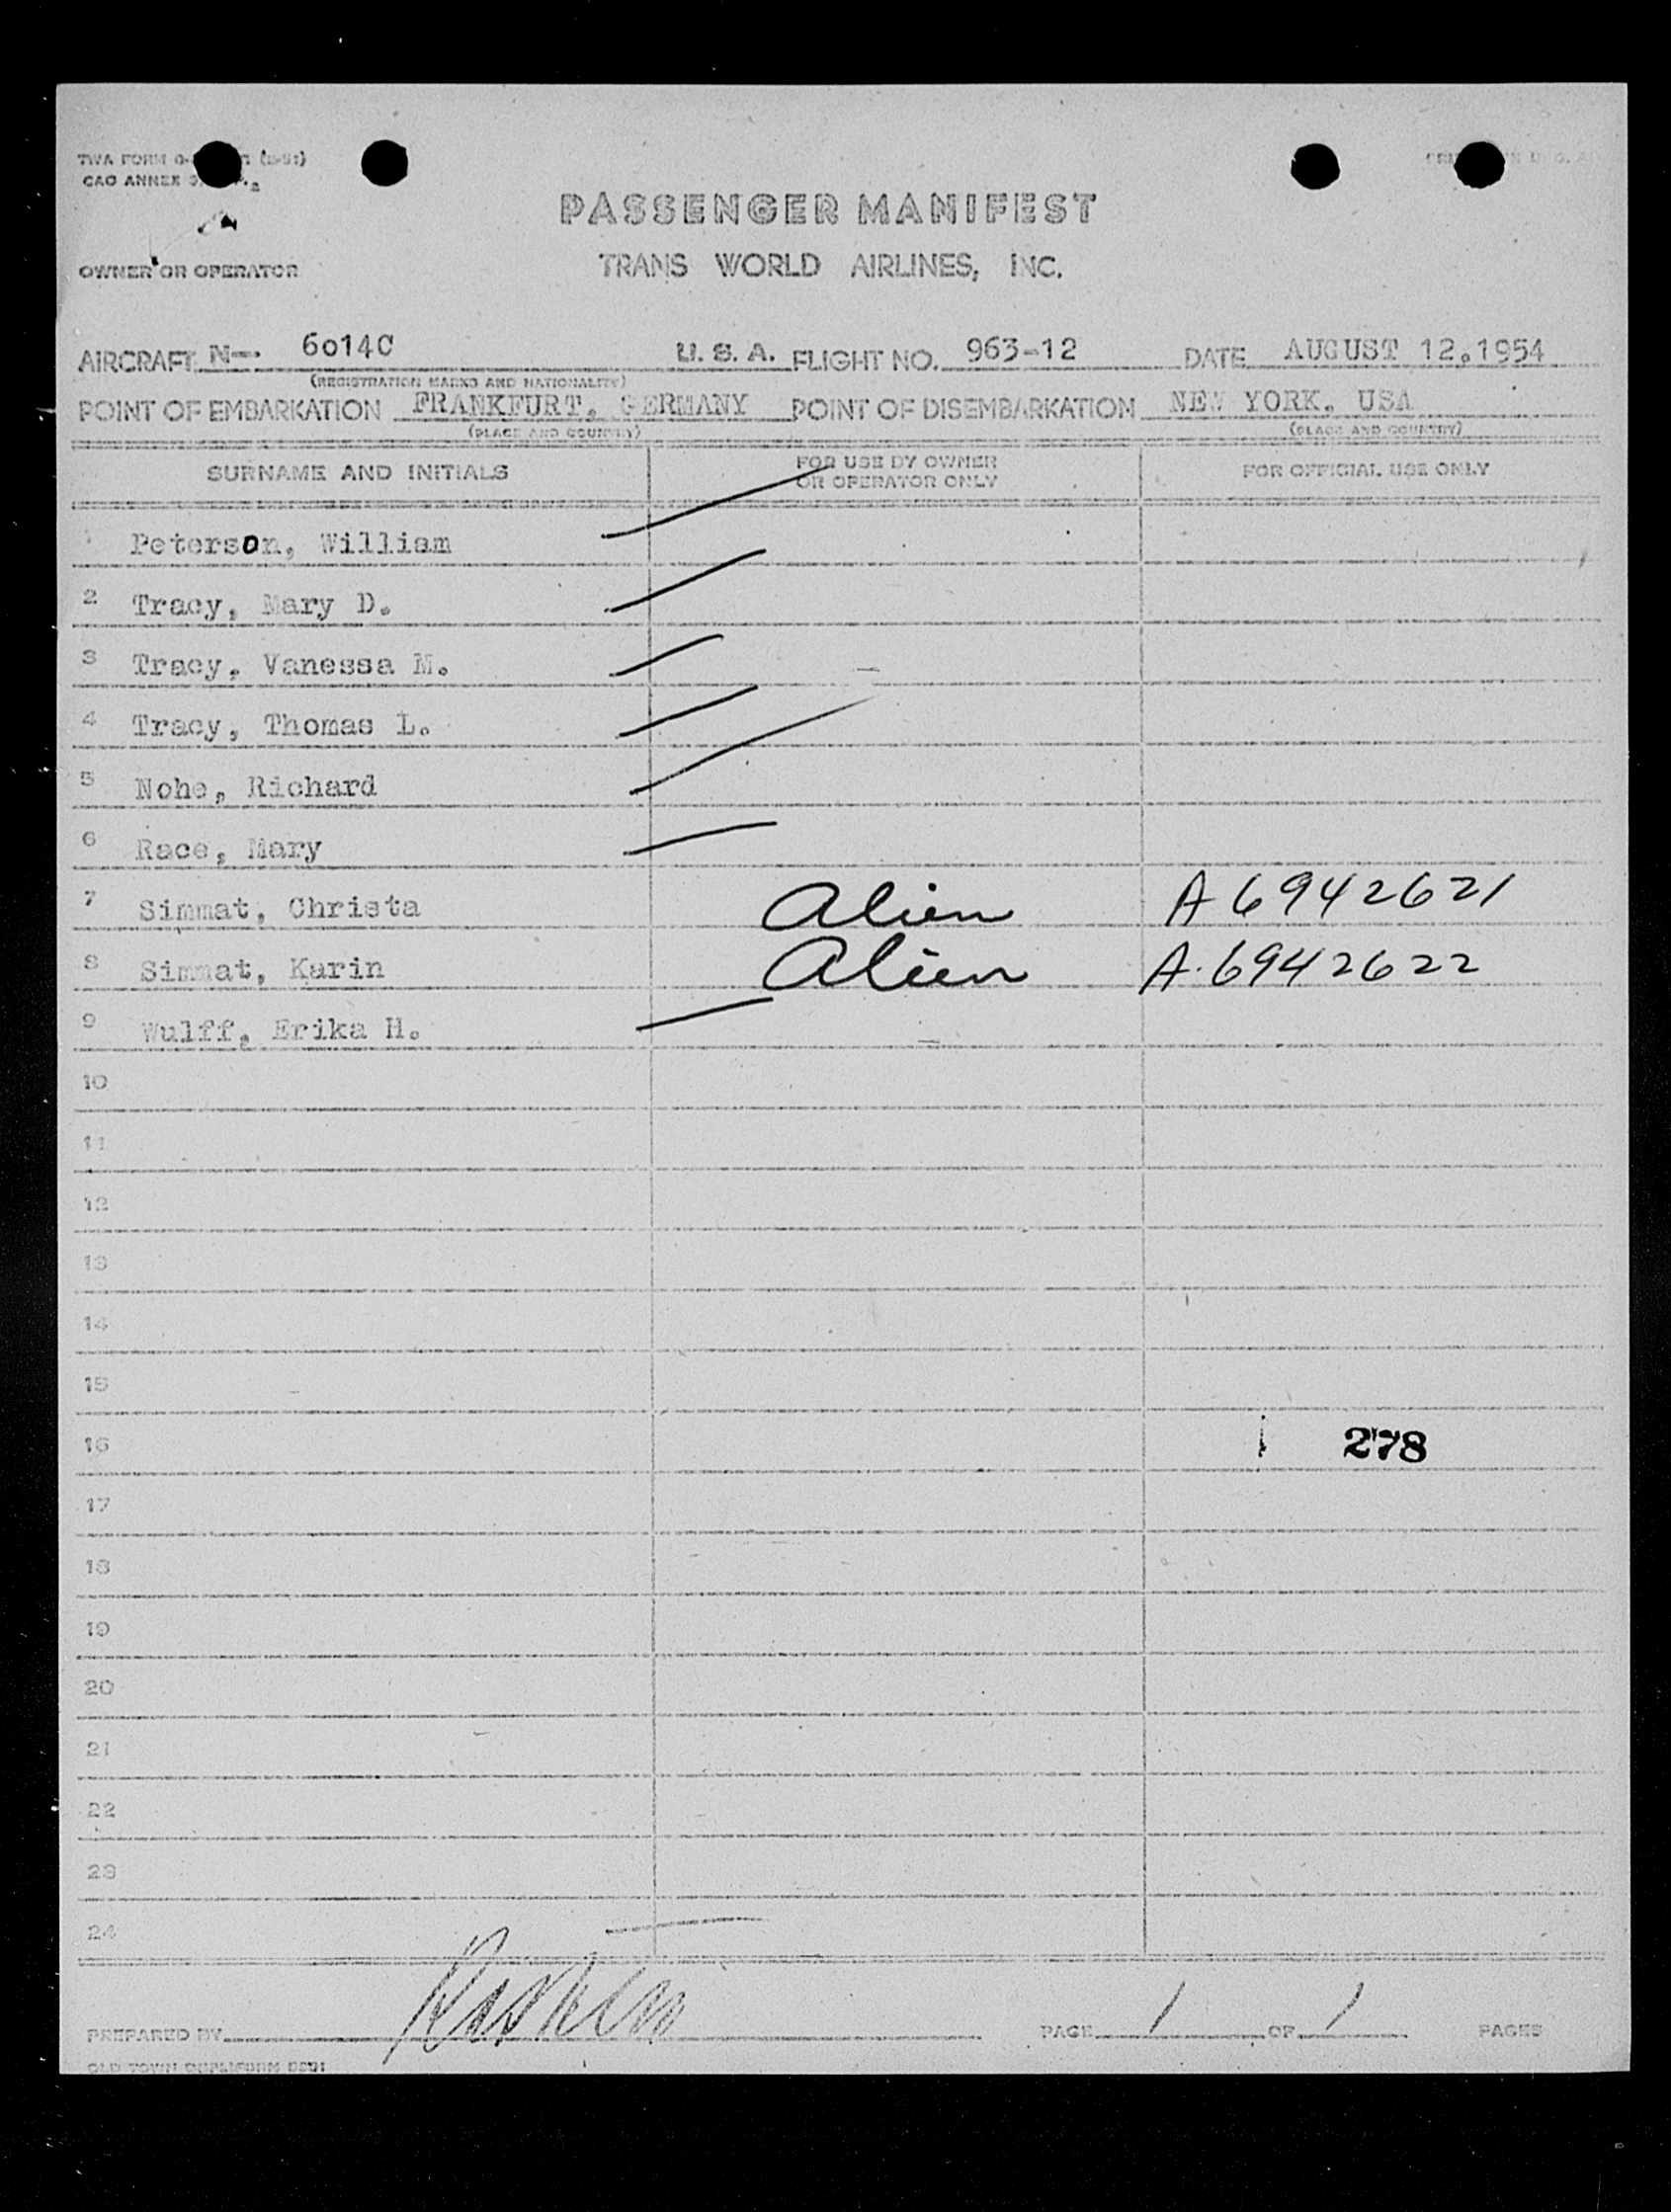 TWA FORM
CAO ANNEX
PASSENGER MANIFEST
OWNER OR OPERATOR
TRANS WORLD AIRLINES, INC.
AIRCRAFT N-- 6014C U. S. A. FLIGHT NO. 963-12 DATE AUGUST 12,1954
(REGISTRATION MARKS AND NATIONALITY)
POINT OF EMBARKATION FRANKFURT, GERMANY POINT OF DISEMBARKATION NEW YORK, USA
(PLACE AND COUNTRY) (PLACE AND COUNTRY)
SURNAME AND INITIALS FOR USE BY OWNER OR OPERATOR ONLY FOR OFFICIAL USE ONLY
1 Peterson, William
2 Tracy, Mary D.
3 Tracy, Vanessa M.
4 Tracy, Thomas L.
5 Nohe, Richard
6 Race, Mary
7 Simmat, Christa Alien A 6942621
8 Simmat, Karin Alien A. 6942622
9 Wulff, Erika H.
10
11
12
13
14
15
16 278
17
18
19
20
21
22
23
24
PREPARED BY PAGE 1 OF 1 PAGES
OLD TOWN DUPLIFORM